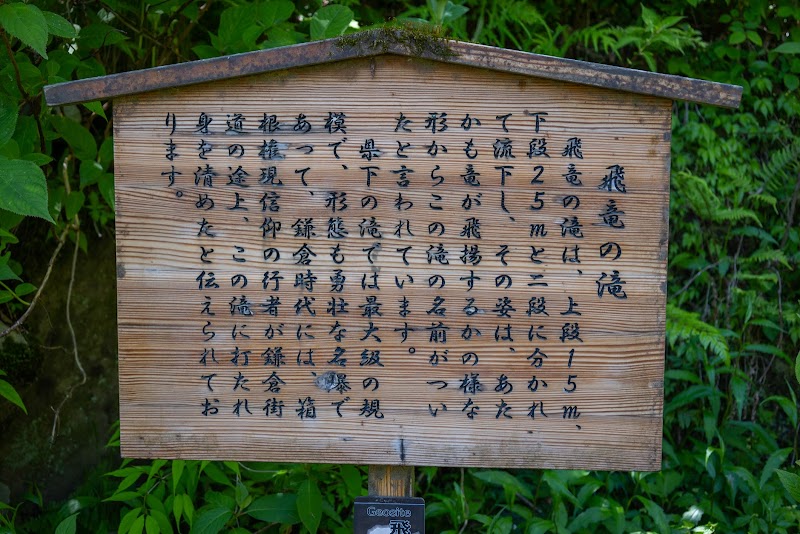 飛竜の滝
飛竜の滝は、上段15m、
下段25mと二段に分かれ、
て流下し、その姿は、あた
かも竜が飛揚するかの様な
形からこの滝の名前がつい
たと言われています。
県下の滝では最大級の規
模で、形態も勇壮な名瀑で
あって、鎌倉時代には、箱
根権現信仰の行者が鎌倉街
道の途上、この滝に打たれ
身を清めたと伝えられてお
ります。
Geosite
飛